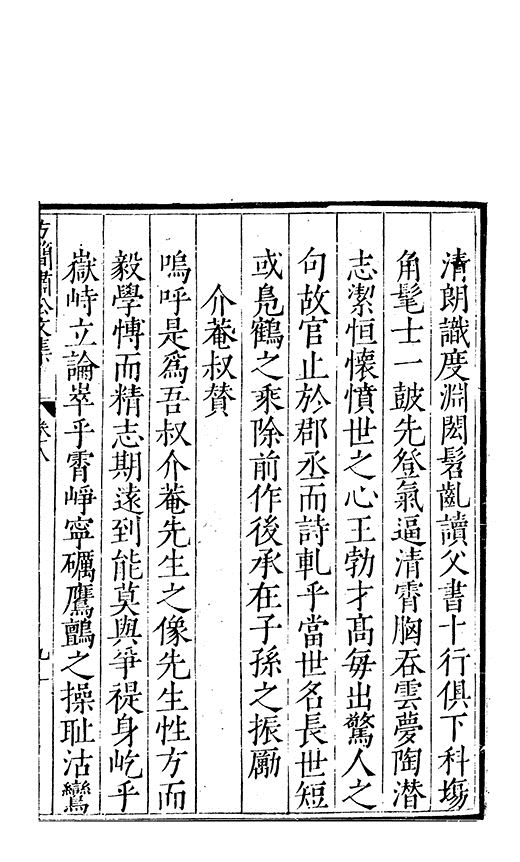 清朗識度淵閎髫齓讀父書十行俱下科塲
角髦士一鼓先登氣逼清霄胸吞雲夢陶潜
志潔恒懷憤世之心王勃才髙每出驚人之
句故官止於郡丞而詩軋乎當世名長世短
或鳧鶴之乘除前作後承在子孫之振勵
介菴叔贊
嗚呼是爲吾叔介菴先生之像先生性方而
毅學愽而精志期遠到能莫與爭禔身屹乎
嶽峙立論崒乎霄崢寧礪鷹鸇之操耻沽鸞
方簡肅公文集
卷八
九